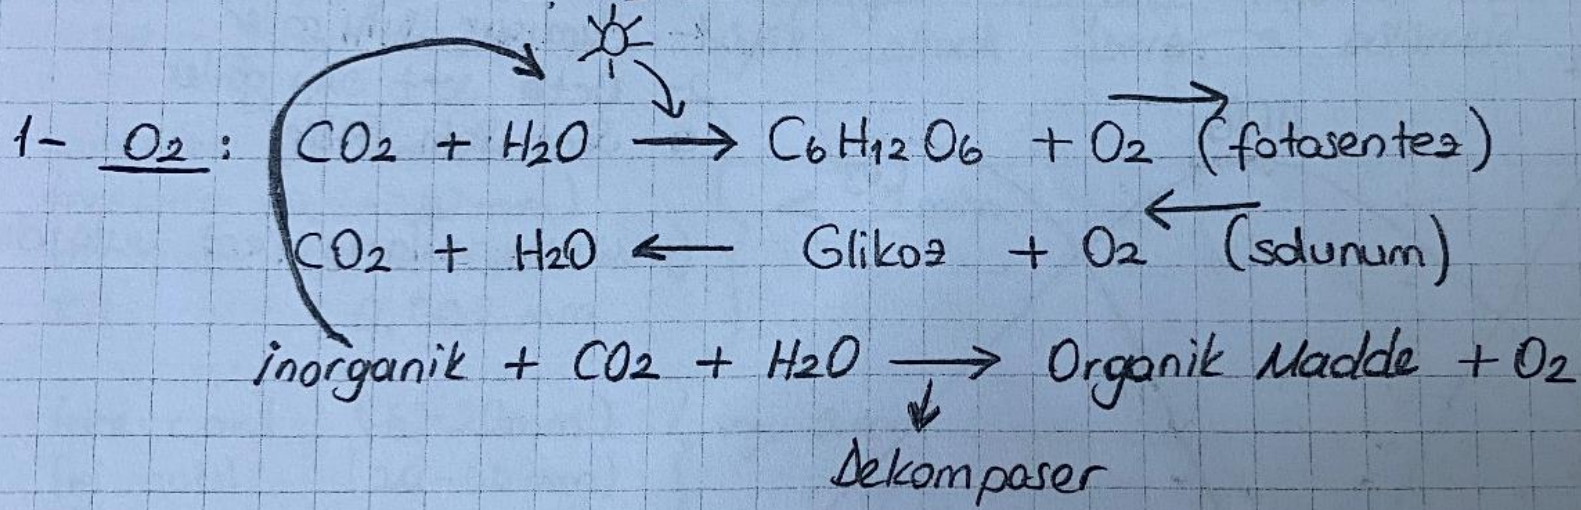 1- O2 : CO2 + H2O → C6H12O6 + O2 (fotosentez)
CO2 + H2O ← Glikoz + O2 (solunum)
inorganik + CO2 + H2O → Organik Madde + O2
Dekomposer